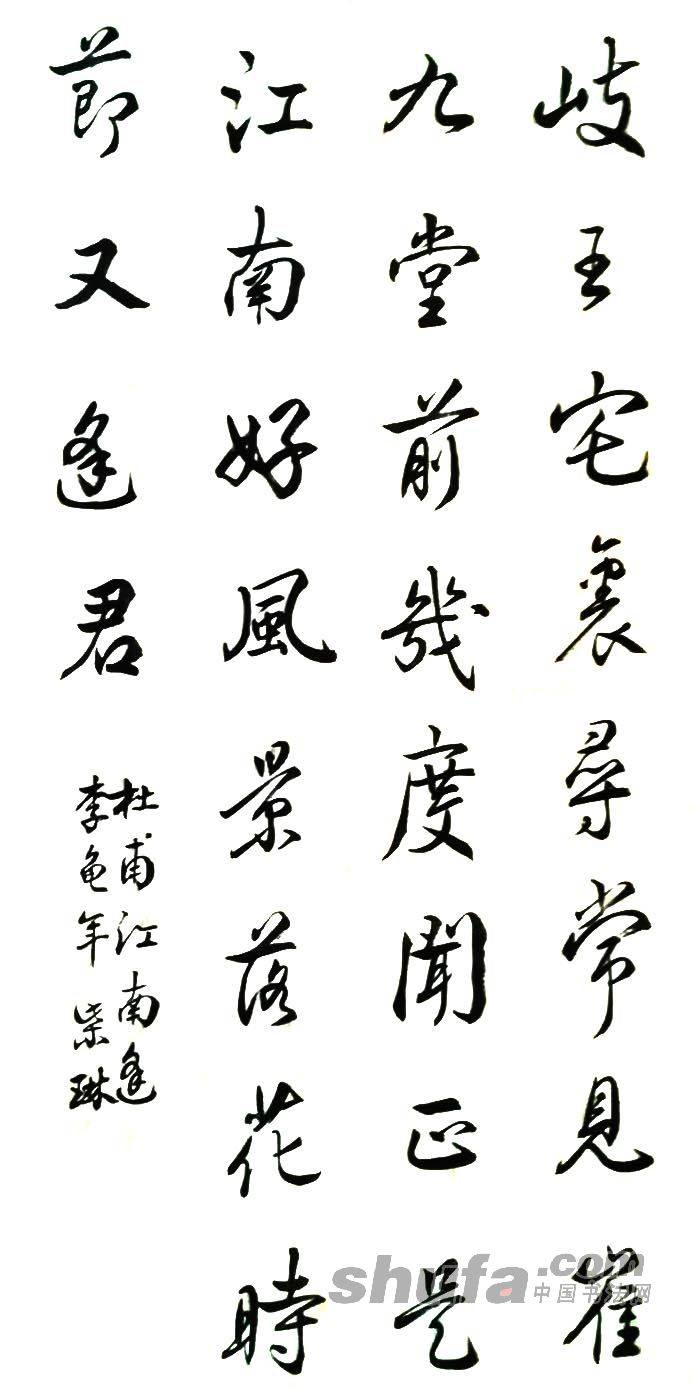 岐王宅裏尋常見崔
九堂前幾度聞正是
江南好風景落花時
節又逢君
杜甫江南逢
李龟年 柴琳
shufa.com
中国书法网